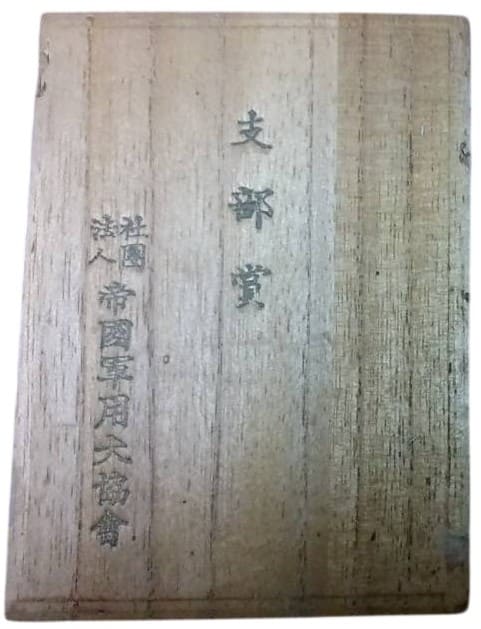 支部賞
社團法人帝國軍用犬協會